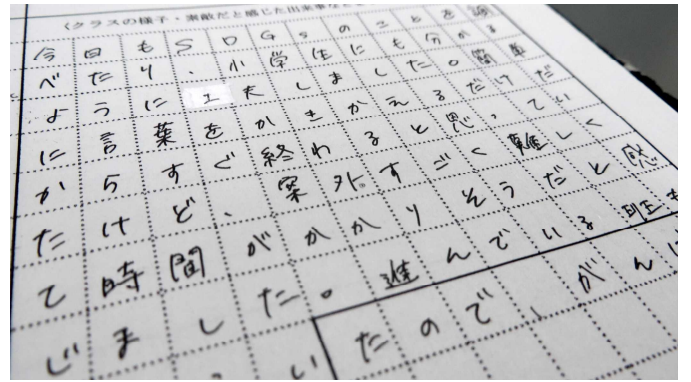 (クラスの様子・素敵だと感じた出来事など
今日もSDGsのことを調
べたり、小学生にも分かる
ように工夫しました。簡単
に言葉をかきかえるだけだ
からすぐ終わると思ってい
たけど、案外すごく難しく
て時間がかかりそうだと感
じました。進んでいる班も
い
たので、がん